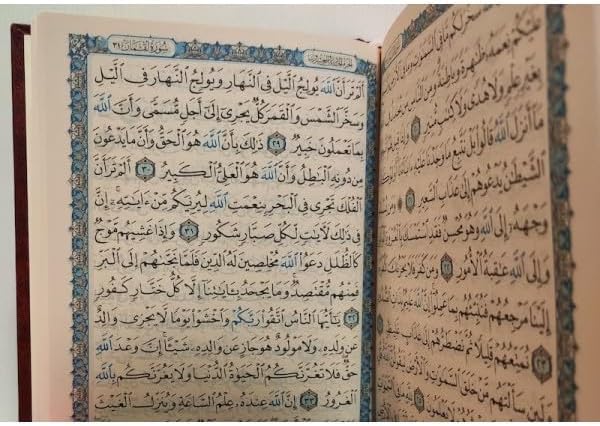 سَخَّرَ لَكُم مَّا فِي ٱلسَّمَٰوَٰتِ وَمَا فِي
عَلَيْكُمْ نِعَمَهُۥ ظَٰهِرَةً وَبَاطِنَةً وَمِنَ ٱلنَّاسِ
بِغَيْرِ عِلْمٍ وَلَا هُدًى وَلَا كِتَٰبٍ مُّنِيرٍ
مَآ أَنزَلَ ٱللَّهُ قَالُوا۟ بَلْ نَتَّبِعُ مَا وَجَدْنَا عَلَيْهِ
ٱلشَّيْطَٰنُ يَدْعُوهُمْ إِلَىٰ عَذَابِ ٱلسَّعِيرِ
وَجْهَهُۥٓ إِلَى ٱللَّهِ وَهُوَ مُحْسِنٌ فَقَدِ ٱسْتَمْسَكَ بِٱلْعُرْوَةِ
وَإِلَى ٱللَّهِ عَٰقِبَةُ ٱلْأُمُورِ ٢٢ وَمَن كَفَرَ فَلَا يَحْزُنكَ
إِلَيْنَا مَرْجِعُهُمْ فَنُنَبِّئُهُم بِمَا عَمِلُوٓا۟ إِنَّ ٱللَّهَ عَلِيمٌ
٢٣ نُمَتِّعُهُمْ قَلِيلًا ثُمَّ نَضْطَرُّهُمْ إِلَىٰ
وَلَئِن سَأَلْتَهُم مَّنْ خَلَقَ ٱلسَّمَٰوَٰتِ وَٱلْأَرْضَ
سُورَةُ لُقْمَان ٣١
أَلَمْ تَرَ أَنَّ ٱللَّهَ يُولِجُ ٱلَّيْلَ فِي ٱلنَّهَارِ وَيُولِجُ ٱلنَّهَارَ فِي ٱلَّيْلِ
وَسَخَّرَ ٱلشَّمْسَ وَٱلْقَمَرَ كُلٌّ يَجْرِىٓ إِلَىٰٓ أَجَلٍ مُّسَمًّى وَأَنَّ ٱللَّهَ
بِمَا تَعْمَلُونَ خَبِيرٌ ٢٩ ذَٰلِكَ بِأَنَّ ٱللَّهَ هُوَ ٱلْحَقُّ وَأَنَّ مَا يَدْعُونَ
مِن دُونِهِ ٱلْبَٰطِلُ وَأَنَّ ٱللَّهَ هُوَ ٱلْعَلِىُّ ٱلْكَبِيرُ ٣٠ أَلَمْ تَرَ أَنَّ
ٱلْفُلْكَ تَجْرِى فِي ٱلْبَحْرِ بِنِعْمَتِ ٱللَّهِ لِيُرِيَكُم مِّنْ ءَايَٰتِهِۦٓ إِنَّ
فِي ذَٰلِكَ لَءَايَٰتٍ لِّكُلِّ صَبَّارٍ شَكُورٍ ٣١ وَإِذَا غَشِيَهُم مَّوْجٌ
كَٱلظُّلَلِ دَعَوُا۟ ٱللَّهَ مُخْلِصِينَ لَهُ ٱلدِّينَ فَلَمَّا نَجَّىٰهُمْ إِلَى ٱلْبَرِّ
فَمِنْهُم مُّقْتَصِدٌ وَمَا يَجْحَدُ بِـَٔايَٰتِنَآ إِلَّا كُلُّ خَتَّارٍ كَفُورٍ
٣٢ يَٰٓأَيُّهَا ٱلنَّاسُ ٱتَّقُوا۟ رَبَّكُمْ وَٱخْشَوْا۟ يَوْمًا لَّا يَجْزِى وَالِدٌ
عَن وَلَدِهِۦ وَلَا مَوْلُودٌ هُوَ جَازٍ عَن وَالِدِهِۦ شَيْـًٔا إِنَّ وَعْدَ ٱللَّهِ
حَقٌّ فَلَا تَغُرَّنَّكُمُ ٱلْحَيَوٰةُ ٱلدُّنْيَا وَلَا يَغُرَّنَّكُم بِٱللَّهِ
ٱلْغَرُورُ ٣٣ إِنَّ ٱللَّهَ عِندَهُۥ عِلْمُ ٱلسَّاعَةِ وَيُنَزِّلُ ٱلْغَيْثَ